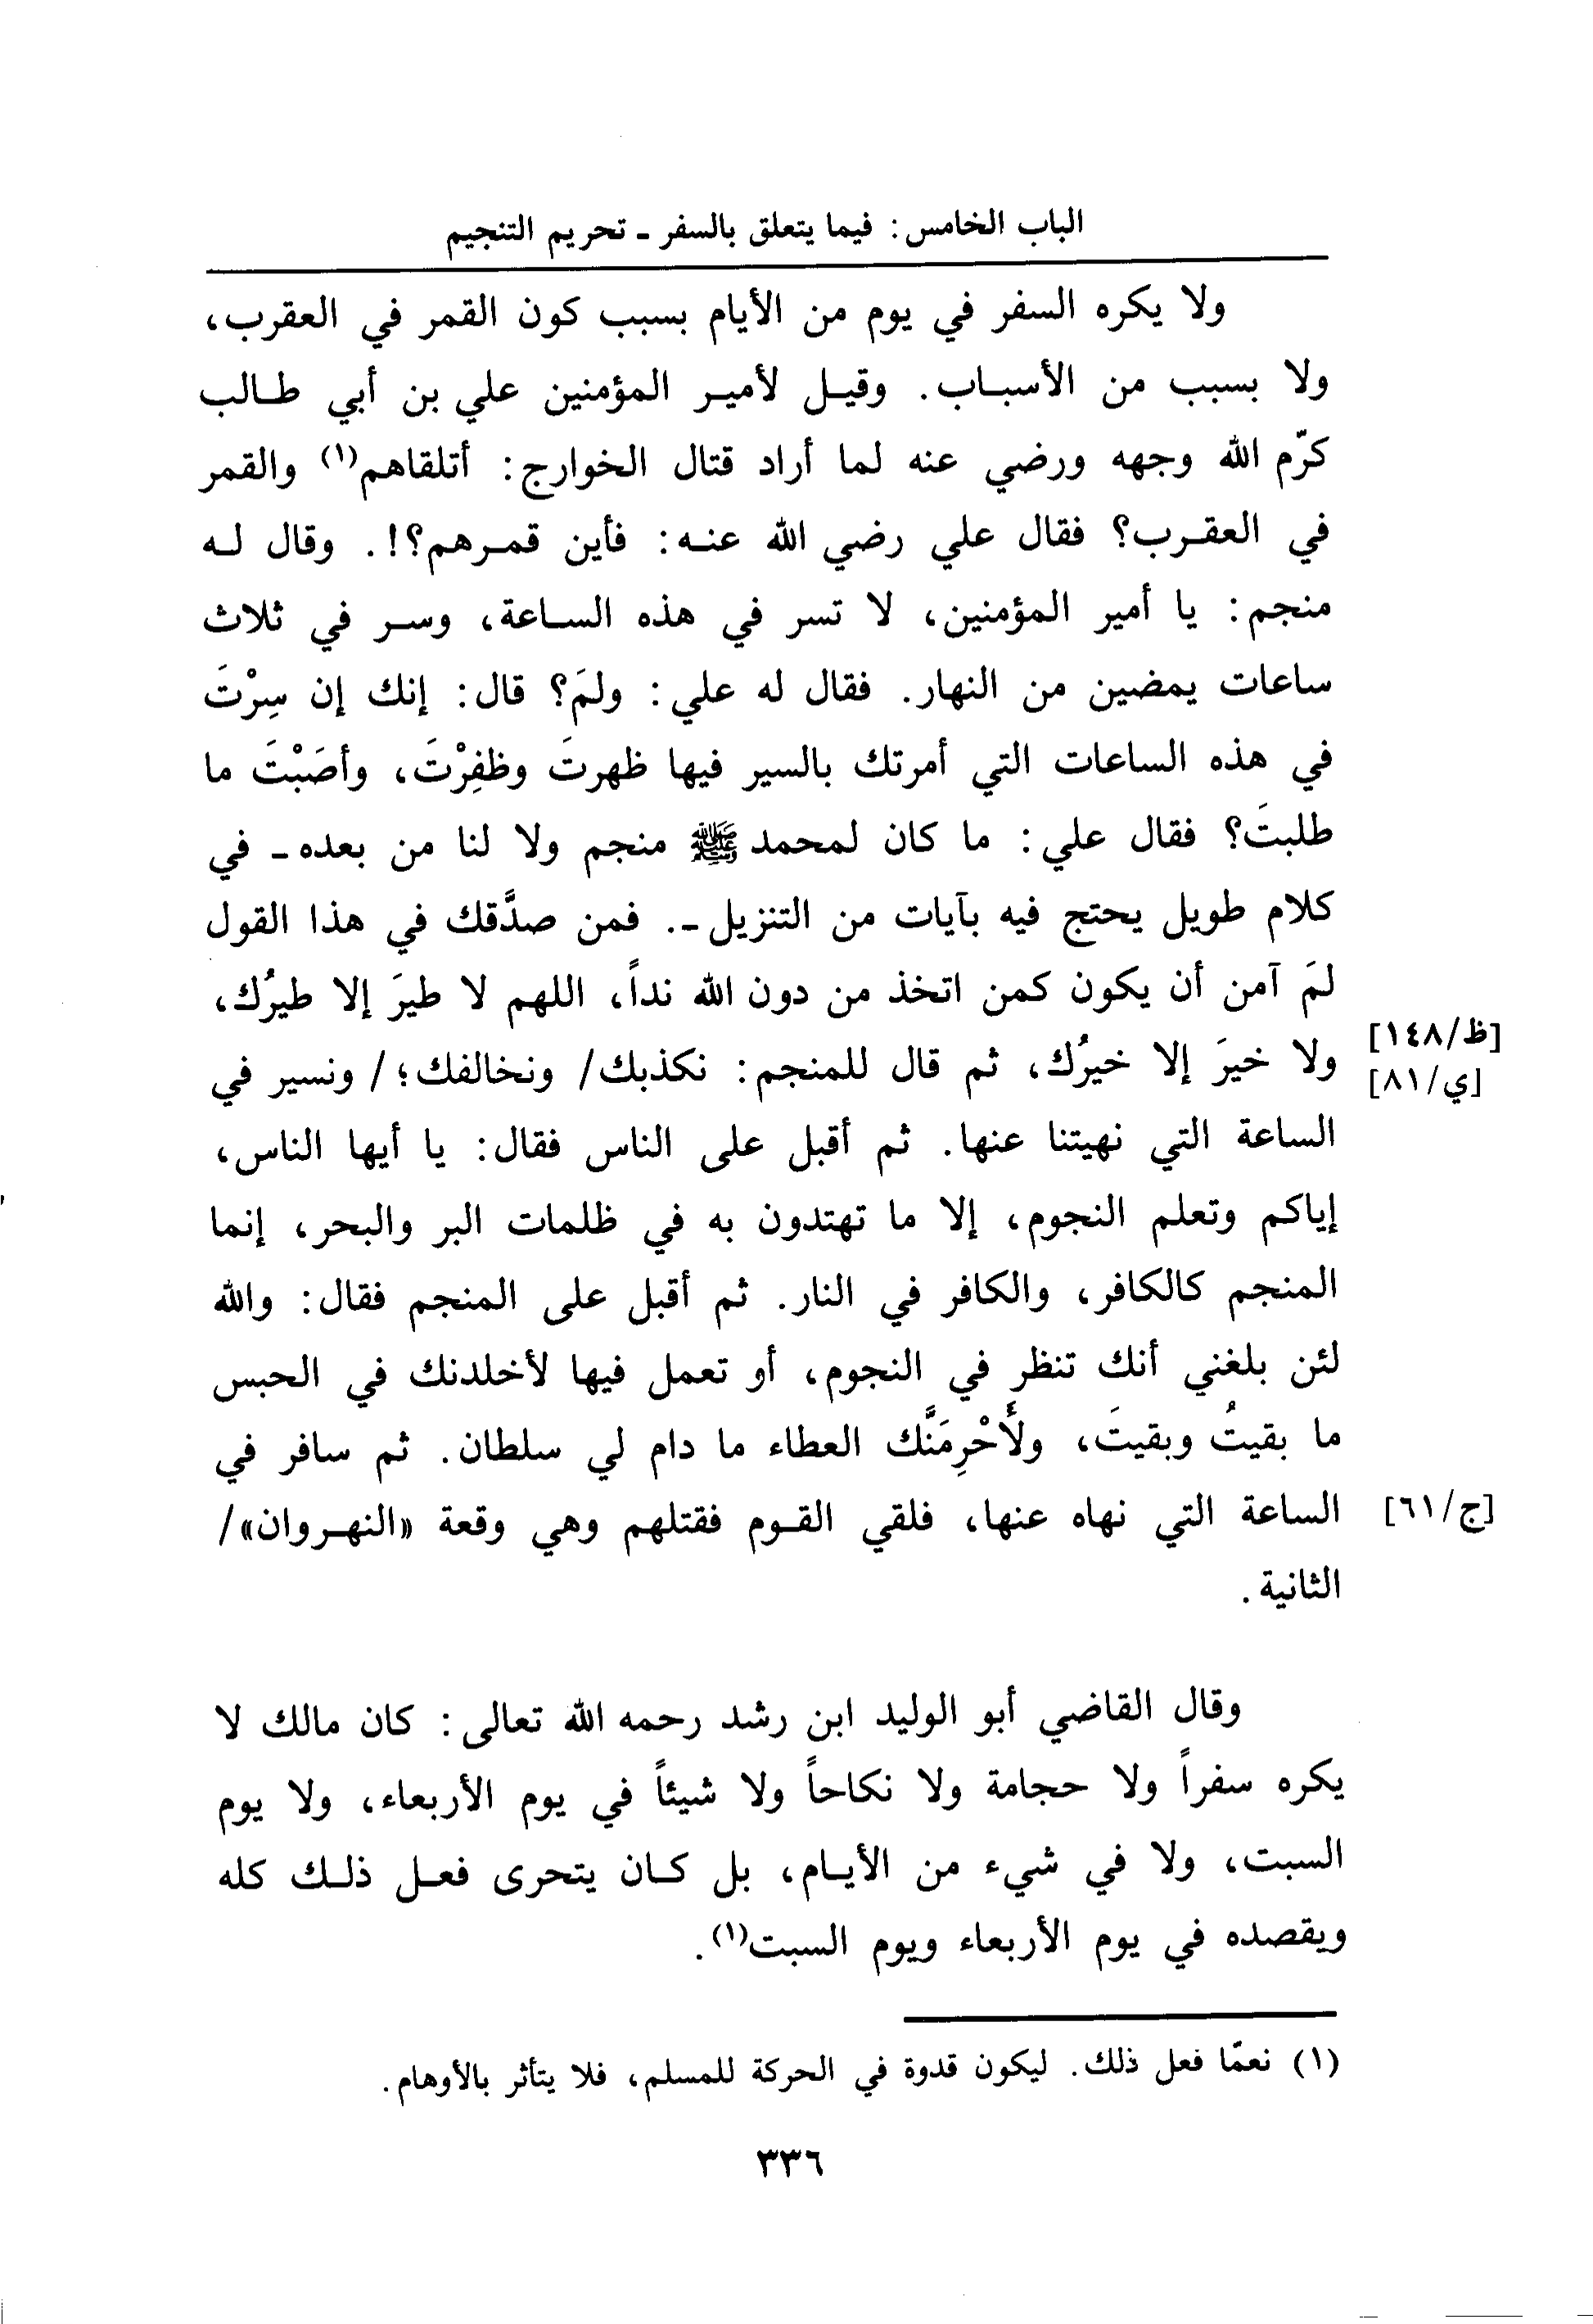 الباب الخامس: فيما يتعلق بالسفر - تحريم التنجيم
ولا يكره السفر في يوم من الأيام بسبب كون القمر في العقرب،
ولا بسبب من الأسبـاب. وقيـل لأميـر المؤمنين علي بن أبي طـالب
كرّم الله وجهه ورضي عنه لما أراد قتال الخوارج: أتلقاهم(١) والقمر
في العقـرب؟ فقال علي رضي الله عنـه: فأين قمـرهم؟!. وقال لـه
منجم: يا أمير المؤمنين، لا تسر في هذه السـاعة، وسـر في ثلاث
ساعات يمضين من النهار. فقال له علي: ولمَ؟ قال: إنك إن سِرْتَ
في هذه الساعات التي أمرتك بالسير فيها ظهرتَ وظفِرْتَ، وأصَبْتَ ما
طلبتَ؟ فقال علي: ما كان لمحمد ﷺ منجم ولا لنا من بعده - في
كلام طويل يحتج فيه بآيات من التنزيل -. فمن صدَّقك في هذا القول
لمَ آمن أن يكون كمن اتخذ من دون الله نداً، اللهم لا طيرَ إلا طيرُك،
ولا خيرَ إلا خيرُك، ثم قال للمنجم: نكذبك/ ونخالفك؛/ ونسير في
[ظ/١٤٨]
[ي/٨١]
الساعة التي نهيتنا عنها. ثم أقبل على الناس فقال: يا أيها الناس،
إياكم وتعلم النجوم، إلا ما تهتدون به في ظلمات البر والبحر، إنما
المنجم كالكافر، والكافر في النار. ثم أقبل على المنجم فقال: والله
لئن بلغني أنك تنظر في النجوم، أو تعمل فيها لأخلدنك في الحبس
ما بقيتُ وبقيتَ، ولأَحْرِمَنَّك العطاء ما دام لي سلطان. ثم سافر في
الساعة التي نهاه عنها، فلقي القـوم فقتلهم وهي وقعة «النهـروان»/
[ج/٦١]
الثانية.
وقال القاضي أبو الوليد ابن رشد رحمه الله تعالى: كان مالك لا
يكره سفراً ولا حجامة ولا نكاحاً ولا شيئاً في يوم الأربعاء، ولا يوم
السبت، ولا في شيء من الأيـام، بل كـان يتحرى فعـل ذلـك كله
ويقصده في يوم الأربعاء ويوم السبت(١).
(١) نعمّا فعل ذلك. ليكون قدوة في الحركة للمسلم، فلا يتأثر بالأوهام.
٣٣٦